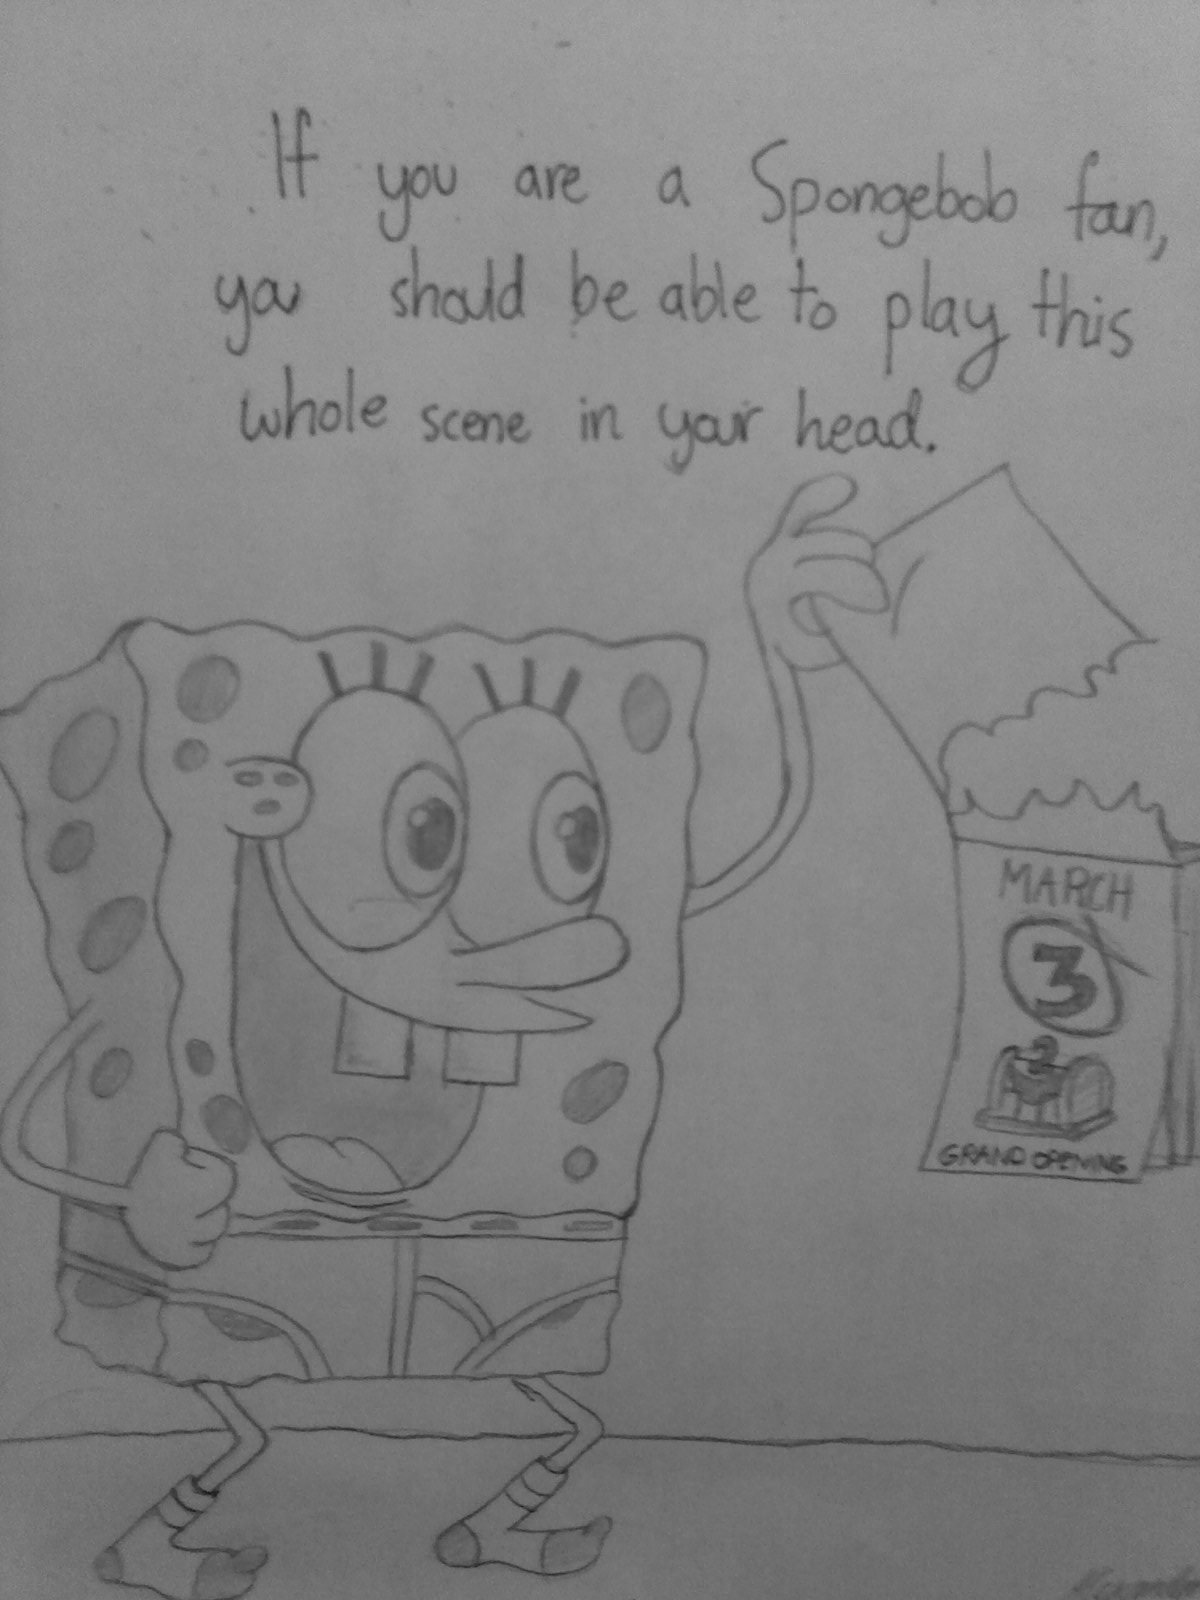 If you are a Spongebob fan,
you should be able to play this
whole scene in your head.
MARCH
3
2
GRAND OPENING